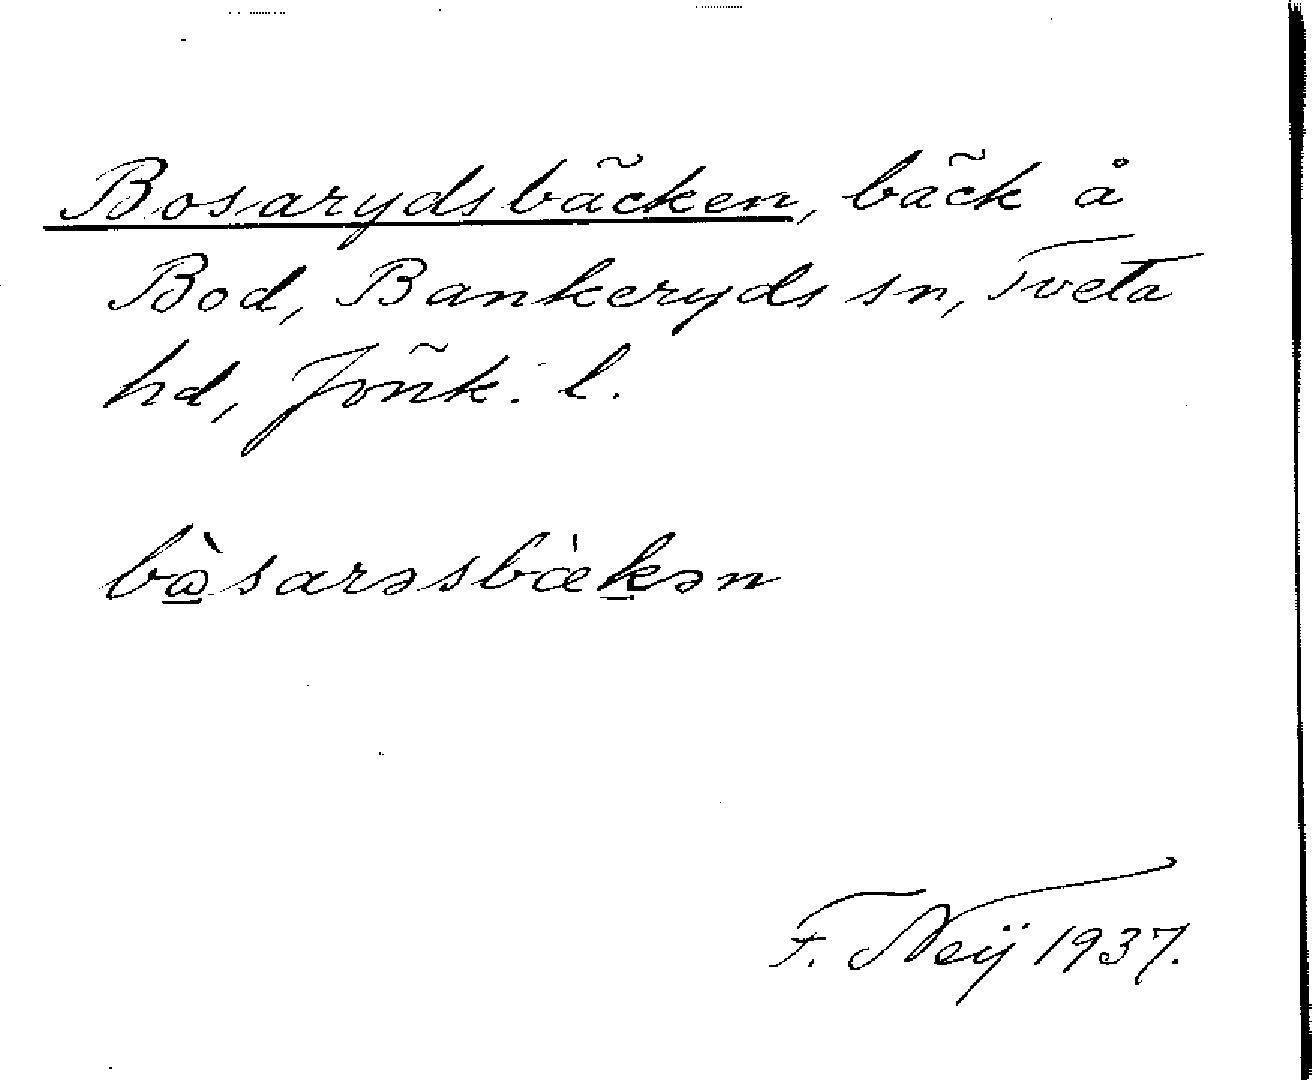 Bosarydsbäcken, bäck å
Bod, Bankeryds sn, Tveta
hd, Jönk. l.
bòsarəsbæ̀kən
F. Neij 1937.